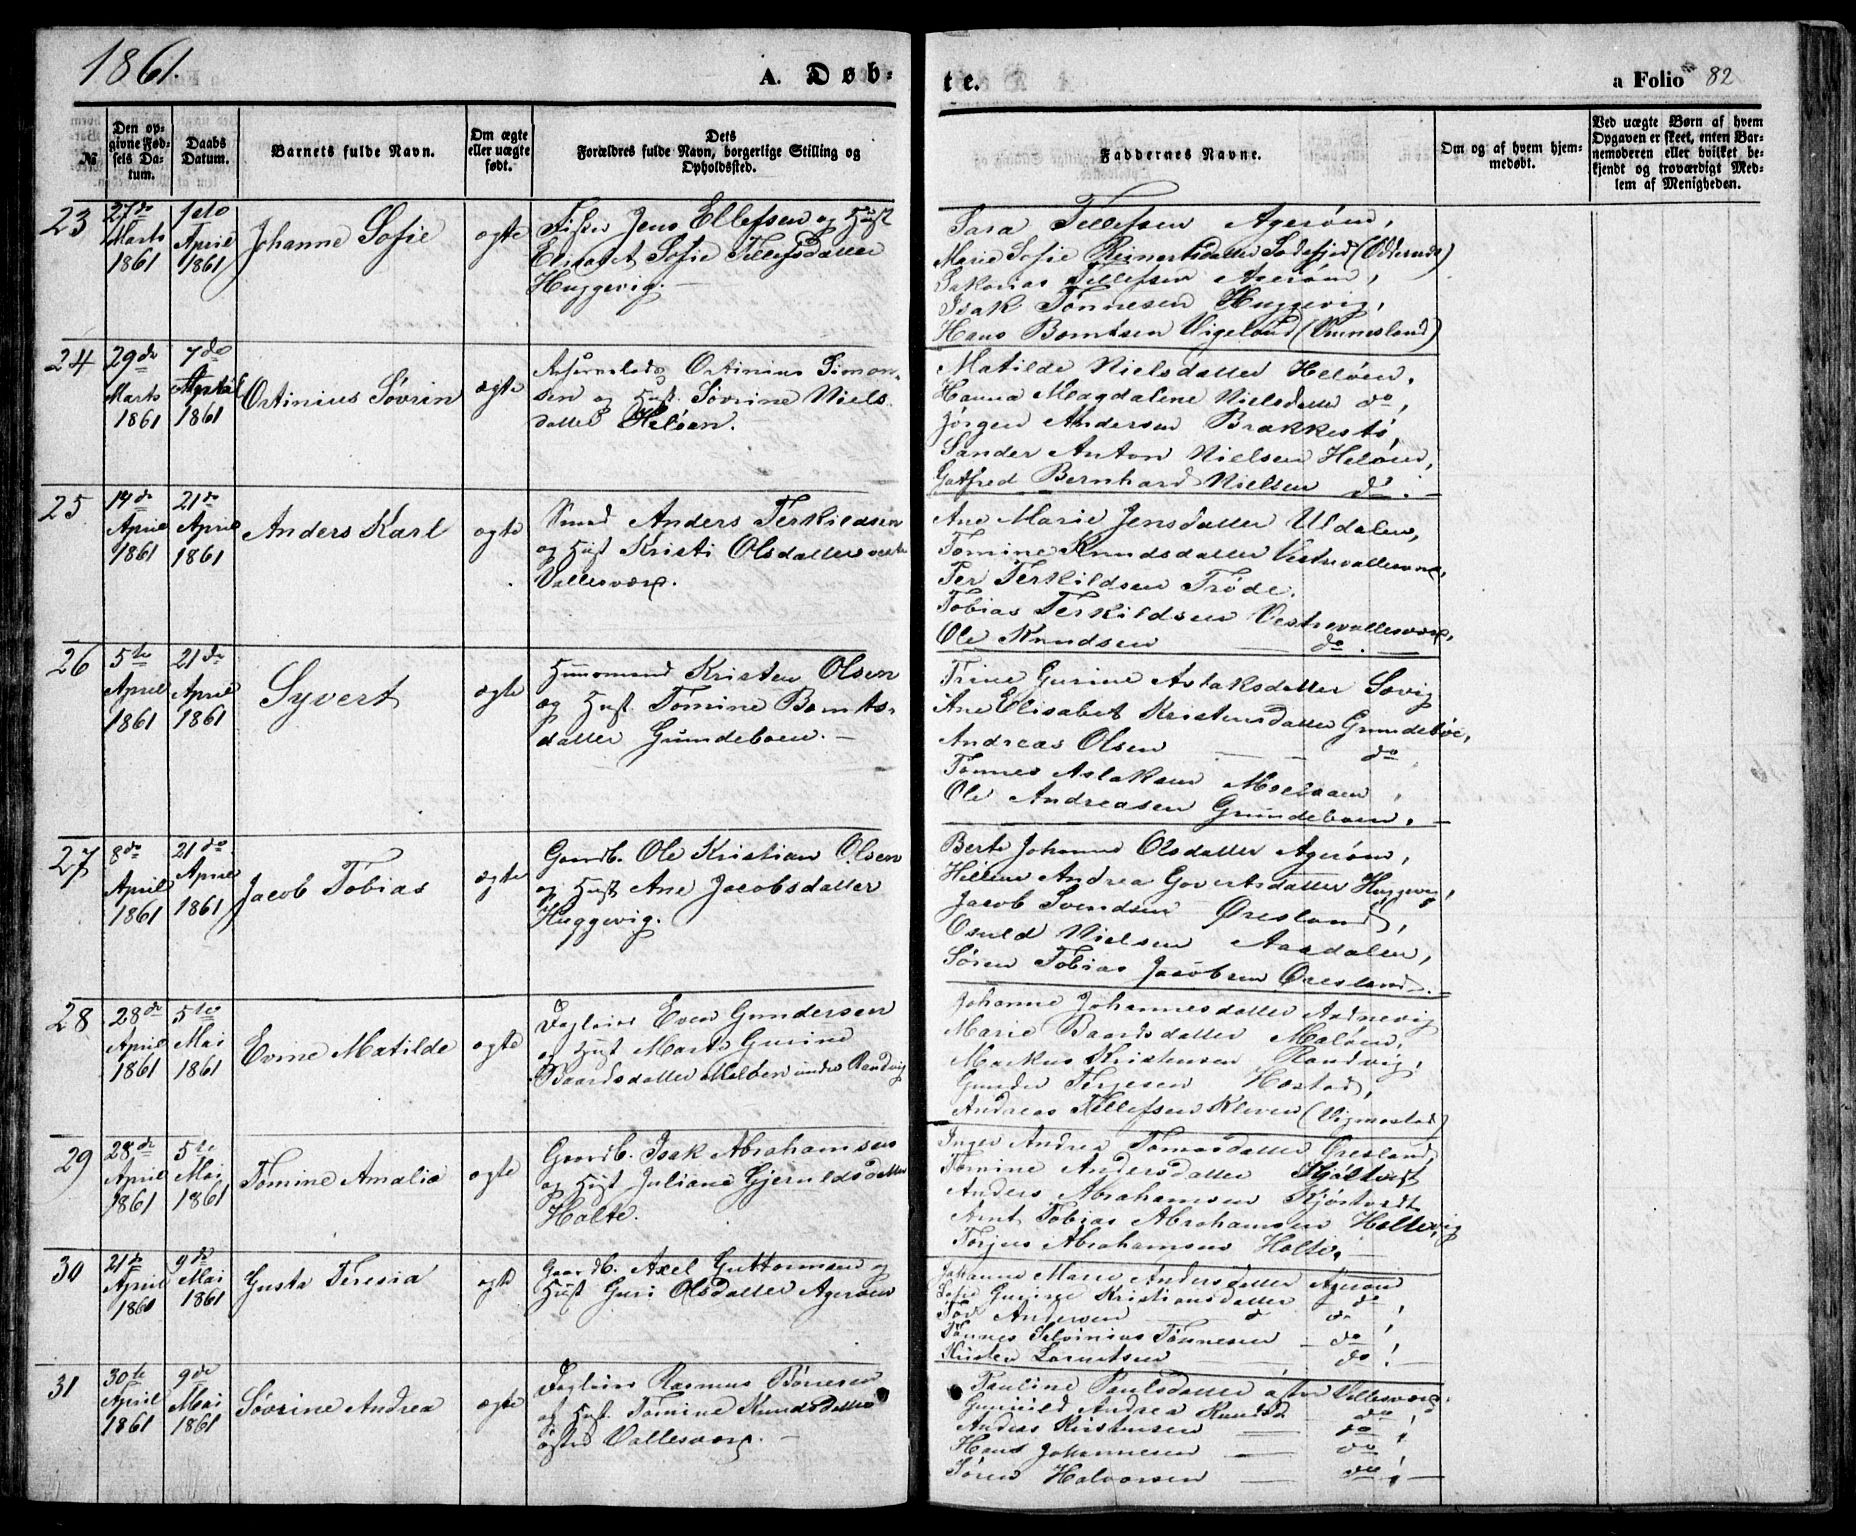 1861.
A. Døb-
te.
a Folio 82
№
Den op-
givne Fød-
sels Da-
tum.
Daabs
Datum.
Barnets fulde Navn.
Om ægte
eller uægte
født.
Dets
Forældres fulde Navn, borgerlige Stilling og
Opholdssted.
Faddernes Navne.
Om og af hvem hjem-
medøbt.
Ved uægte Børn af hvem
Opgaven er skeet, enten Bar-
nemoderen eller hvilket be-
kjendt og troværdigt Med-
lem af Menigheden.
23
27de
Marts
1861
1ste
April
1861
Johanne Sofie
ægte
Fisker Jens Ellefsen og Hust
Elisabet Sofie Tellefsdatter
Huggevig. —
Sara Tellefsen Agerøen,
Marie Sofie Reinertsdatter (Oddernæs)
Sakarias Tellefsen Agerøen,
Isak Tønnesen Huggevig,
Hans Bomtsen Vigeland (Vennesland)
24
29de
Marts
1861
7de
April
1861
Ortinius Søvrin
ægte
Ortinius Simon-
sen og Hust. Søvrine Niels
datter Heløen.
Matilde Nielsdatter Heløen,
Hanna Magdalene Nielsdatter do,
Jørgen Andersen Brækkestø,
Sander Anton Nielsen Heløen,
Gotfred Bernhard Nielsen do. —
25
14de
April
1861
21de
April
1861
Anders Karl
ægte
Smed Anders Terkildsen
og Hust Kristi Olsdatter vestre
Vallesvær.
Ane Marie Jensdatter Uldalen,
Tomine Knudsdatter Vestrevallesvær,
Per Terkildsen Trøde.
Tobias Terkildsen Vestrevallesvær,
Ole Knudsen do. —
26
5te
April
1861
21de
April
1861
Syvert
ægte
Huusmand Kristen Olsen
og Hust. Tomine Bomts-
datter Gundeboen. —
Trine Gurine Aslaksdatter Søvig
Ane Elisabet Kristensdatter Grundeboe,
Andreas Olsen — do
Tønnes Aslaksen Moelaaen,
Ole Andreasen Grundeboen. —
27
8de
April
1861
21de
April
1861
Jacob Tobias
ægte
Gaardb. Ole Kristian Olsen
og Hust Ane Jacobsdatter
Huggevig.
Berte Johanne Olsdatter Agerøen,
Hellene Andrea Govertsdatter Huggevig,
Jacob Svendsen Øresland,
Osuld Nielsen Aasdalen,
Søren Tobias Jacobsen Øresland. —
28
28de
April
1861
5te
Mai
1861
Evine Matilde
ægte
Dagleier Even Gundersen
og Hust Marte Gurine
Baardsdatter Melben under Randvig
Johanne Johannesdatter Aadnevig
Marie Baardsdatter Maløen,
Markus Kristensen Randvig,
Gunder Terjesen Høstad,
Andreas Tellefsen Kleven (Vigmostad)
29
28de
April
1861
5te
Mai
1861
Tomine Amalie
ægte
Gaardb. Isak Abrahamsen
og Hust Juliane Gjeruldsdatter
Holte.
Inger Andrea Tomasdatter Øresland,
Tomine Andersdatter Kjøstvedt
Anders Abrahamsen Kjøstvedt
Arnt Tobias Abrahamsen Holtevig
Terjus Abrahamsen Holte. —
30
21de
April
1861
9de
Mai
1861
Gusta Teresia
ægte
Gaardb. Axel Guttormsen og
Hust Guri Olsdatter Agerøen
Johanne Marie Andersdatter Agerøen
Sofie Gurine Kristiansdatter do,
Tor Andersen do,
Tønnes Salvinius Tønnesen — do,
Kristen Larentsen — do. —
31
30te
April
1861
9de
Mai
1861
Søvrine Andrea
ægte
Dagleier Rasmus Bønesen
og Hust. Tomine Knudsdatter
øster Vallesvær. —
Pauline Paulsdatter øster Vallesvær,
Gunild Andrea Knudsd do,
Anders Kristensen — do,
Hans Johannesen — do,
Søren Halvorsen — do. —